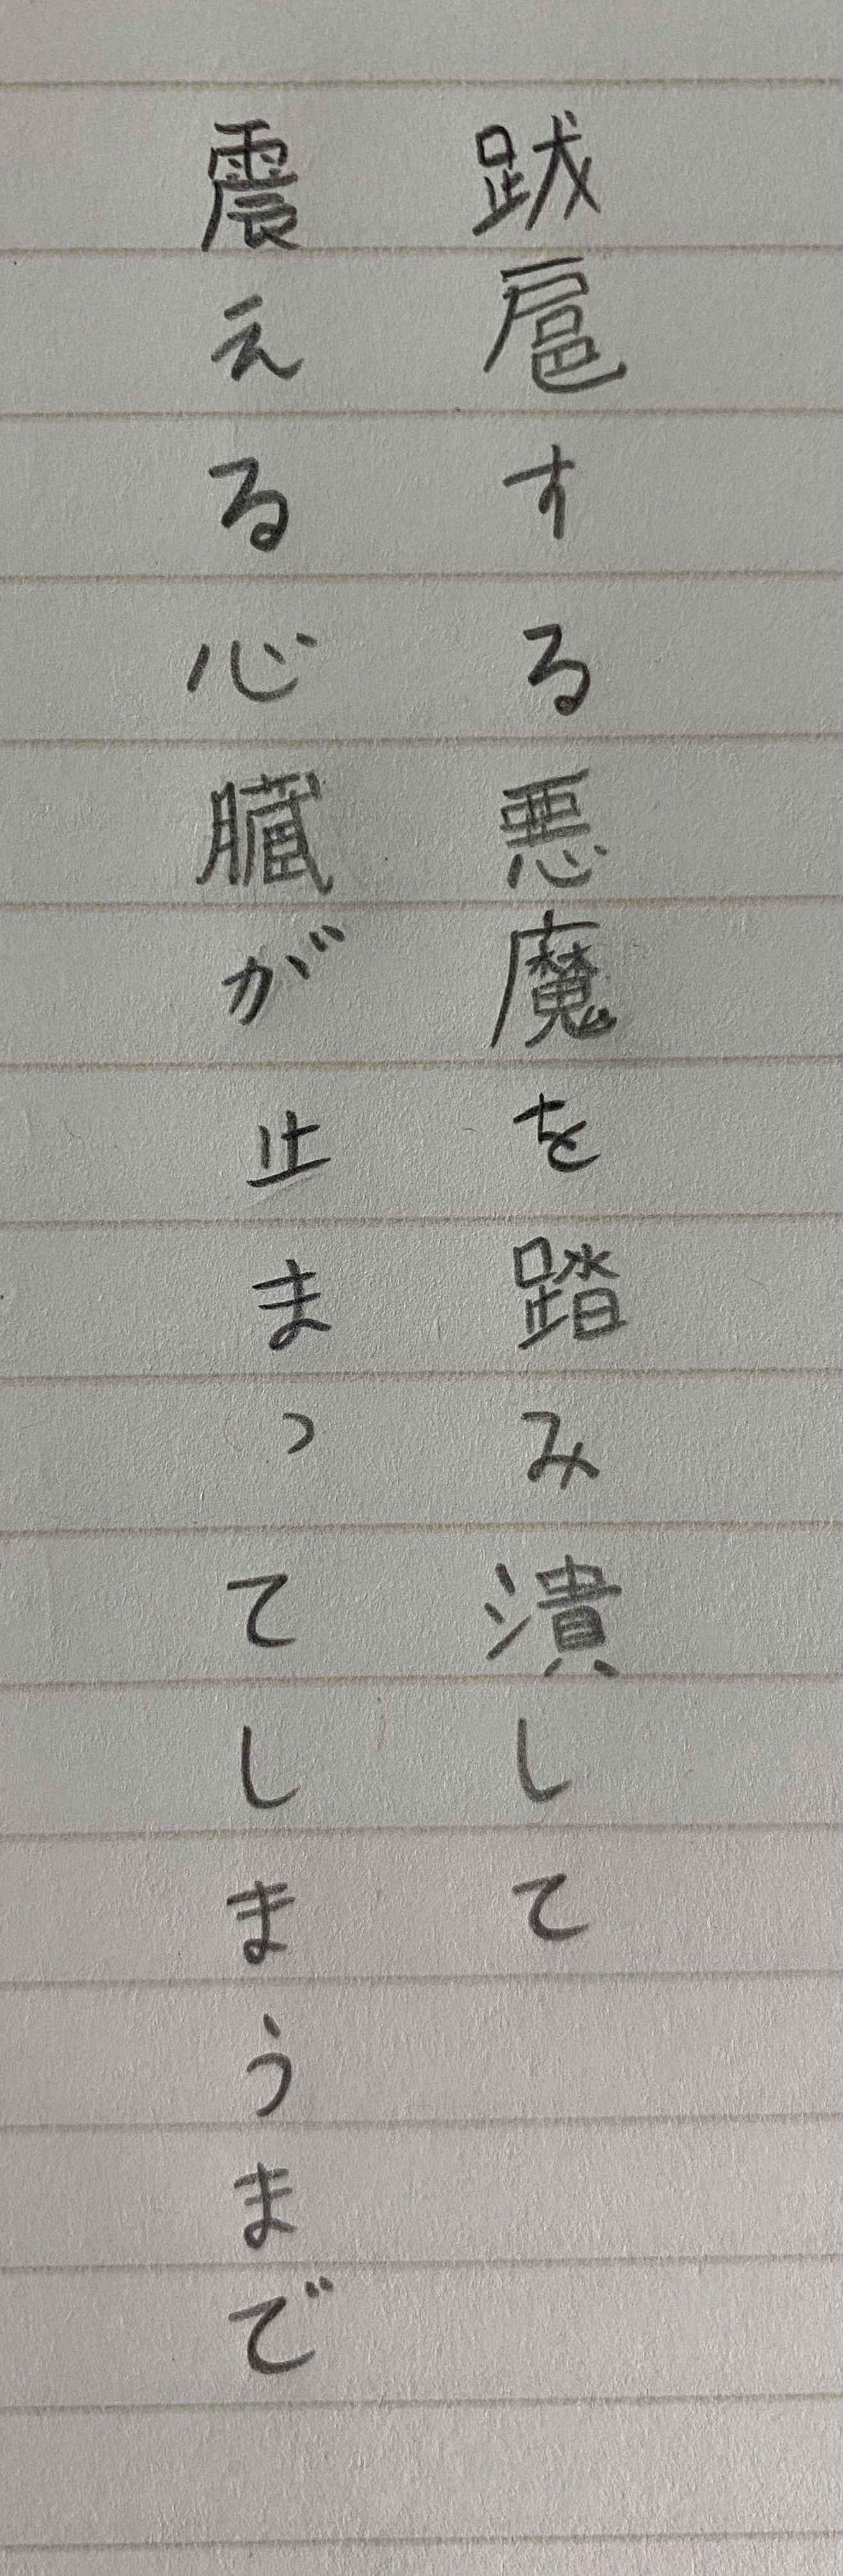 跋扈する悪魔を踏み潰して
震える心臓が止まってしまうまで